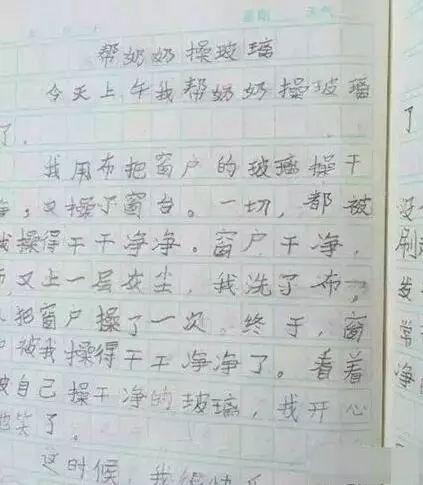 星期 天气
帮奶奶操玻璃
今天上午我帮奶奶操玻璃
了.
我用布把窗户的玻璃操干
净,又操了窗台。一切,都被
我操得干干净净。窗户干净,
布又上一层灰尘,我洗了布,
又把窗户操了一次。终于,窗
户被我操得干干净净了。看着
被自己操干净的玻璃,我开心
地笑了.
这时候,我很快乐
了
没
刷
发
常
净